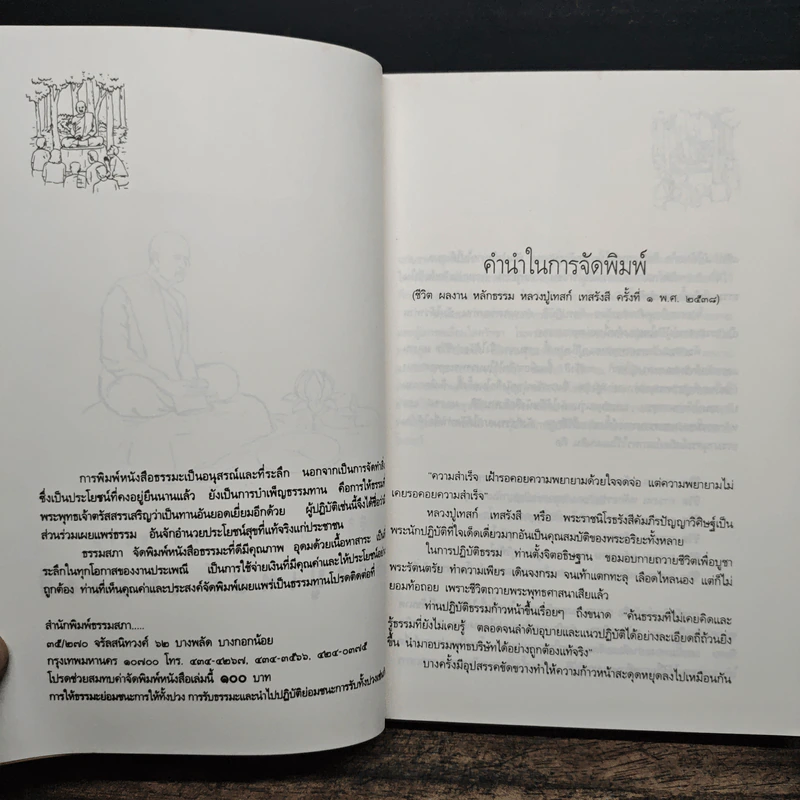 การพิมพ์หนังสือธรรมะเป็นอนุสรณ์และที่ระลึก นอกจากเป็นการจัดทำสิ่ง
ซึ่งเป็นประโยชน์ที่คงอยู่ยืนนานแล้ว ยังเป็นการบำเพ็ญธรรมทาน คือการให้ธรรม
พระพุทธเจ้าตรัสสรรเสริญว่าเป็นทานอันยอดเยี่ยมอีกด้วย ผู้ปฏิบัติเช่นนี้จึงได้ชื่อว่า
ส่วนร่วมเผยแพร่ธรรม อันจักอำนวยประโยชน์สุขที่แท้จริงแก่ประชาชน
ธรรมสภา จัดพิมพ์หนังสือธรรมะที่ดีมีคุณภาพ อุดมด้วยเนื้อหาสาระ
ระลึกในทุกโอกาสของงานประเพณี เป็นการใช้จ่ายเงินที่มีคุณค่าและให้ประโยชน์
ถูกต้อง ท่านที่เห็นคุณค่าและประสงค์จัดพิมพ์เผยแพร่เป็นธรรมทานโปรดติดต่อที่
สำนักพิมพ์ธรรมสภา.....
๓๕/๒๗๐ จรัลสนิทวงศ์ ๖๒ บางพลัด บางกอกน้อย
กรุงเทพมหานคร ๑๐๗๐๐ โทร. ๔๓๔-๔๒๖๗, ๔๓๔-๓๕๖๖, ๔๒๔-๐๓๗๕
โปรดช่วยสมทบค่าจัดพิมพ์หนังสือเล่มนี้ ๑๐๐ บาท
การให้ธรรมะย่อมชนะการให้ทั้งปวง การรับธรรมะและนำไปปฏิบัติย่อมชนะการรับทั้งปวง
คำนำในการจัดพิมพ์
(ชีวิต ผลงาน หลักธรรม หลวงปู่เทสก์ เทสรังสี ครั้งที่ ๑ พ.ศ. ๒๕๓๘)
"ความสำเร็จ เฝ้ารอคอยความพยายามด้วยใจจดจ่อ แต่ความพยายามไม่
เคยรอคอยความสำเร็จ"
หลวงปู่เทสก์ เทสรังสี หรือ พระราชนิโรธรังสีคัมภีรปัญญาวิศิษฐ์เป็น
พระนักปฏิบัติที่ใจเด็ดเดี่ยวมากอันเป็นคุณสมบัติของพระอริยะทั้งหลาย
ในการปฏิบัติธรรม ท่านตั้งจิตอธิษฐาน ขอมอบกายถวายชีวิตเพื่อบูชา
พระรัตนตรัย ทำความเพียร เดินจงกรม จนเท้าแตกทะลุ เลือดไหลนอง แต่ก็ไม่
ยอมท้อถอย เพราะชีวิตถวายพระพุทธศาสนาเสียแล้ว
ท่านปฏิบัติธรรมก้าวหน้าขึ้นเรื่อยๆ ถึงขนาด "ค้นธรรมที่ไม่เคยคิดและ
รู้ธรรมที่ยังไม่เคยรู้ ตลอดจนลำดับอุบายและแนวปฏิบัติได้อย่างละเอียดถี่ถ้วนยิ่ง
ขึ้น นำมาอบรมพุทธบริษัทได้อย่างถูกต้องแท้จริง"
บางครั้งมีอุปสรรคขัดขวางทำให้ความก้าวหน้าสะดุดหยุดลงไปเหมือนกัน